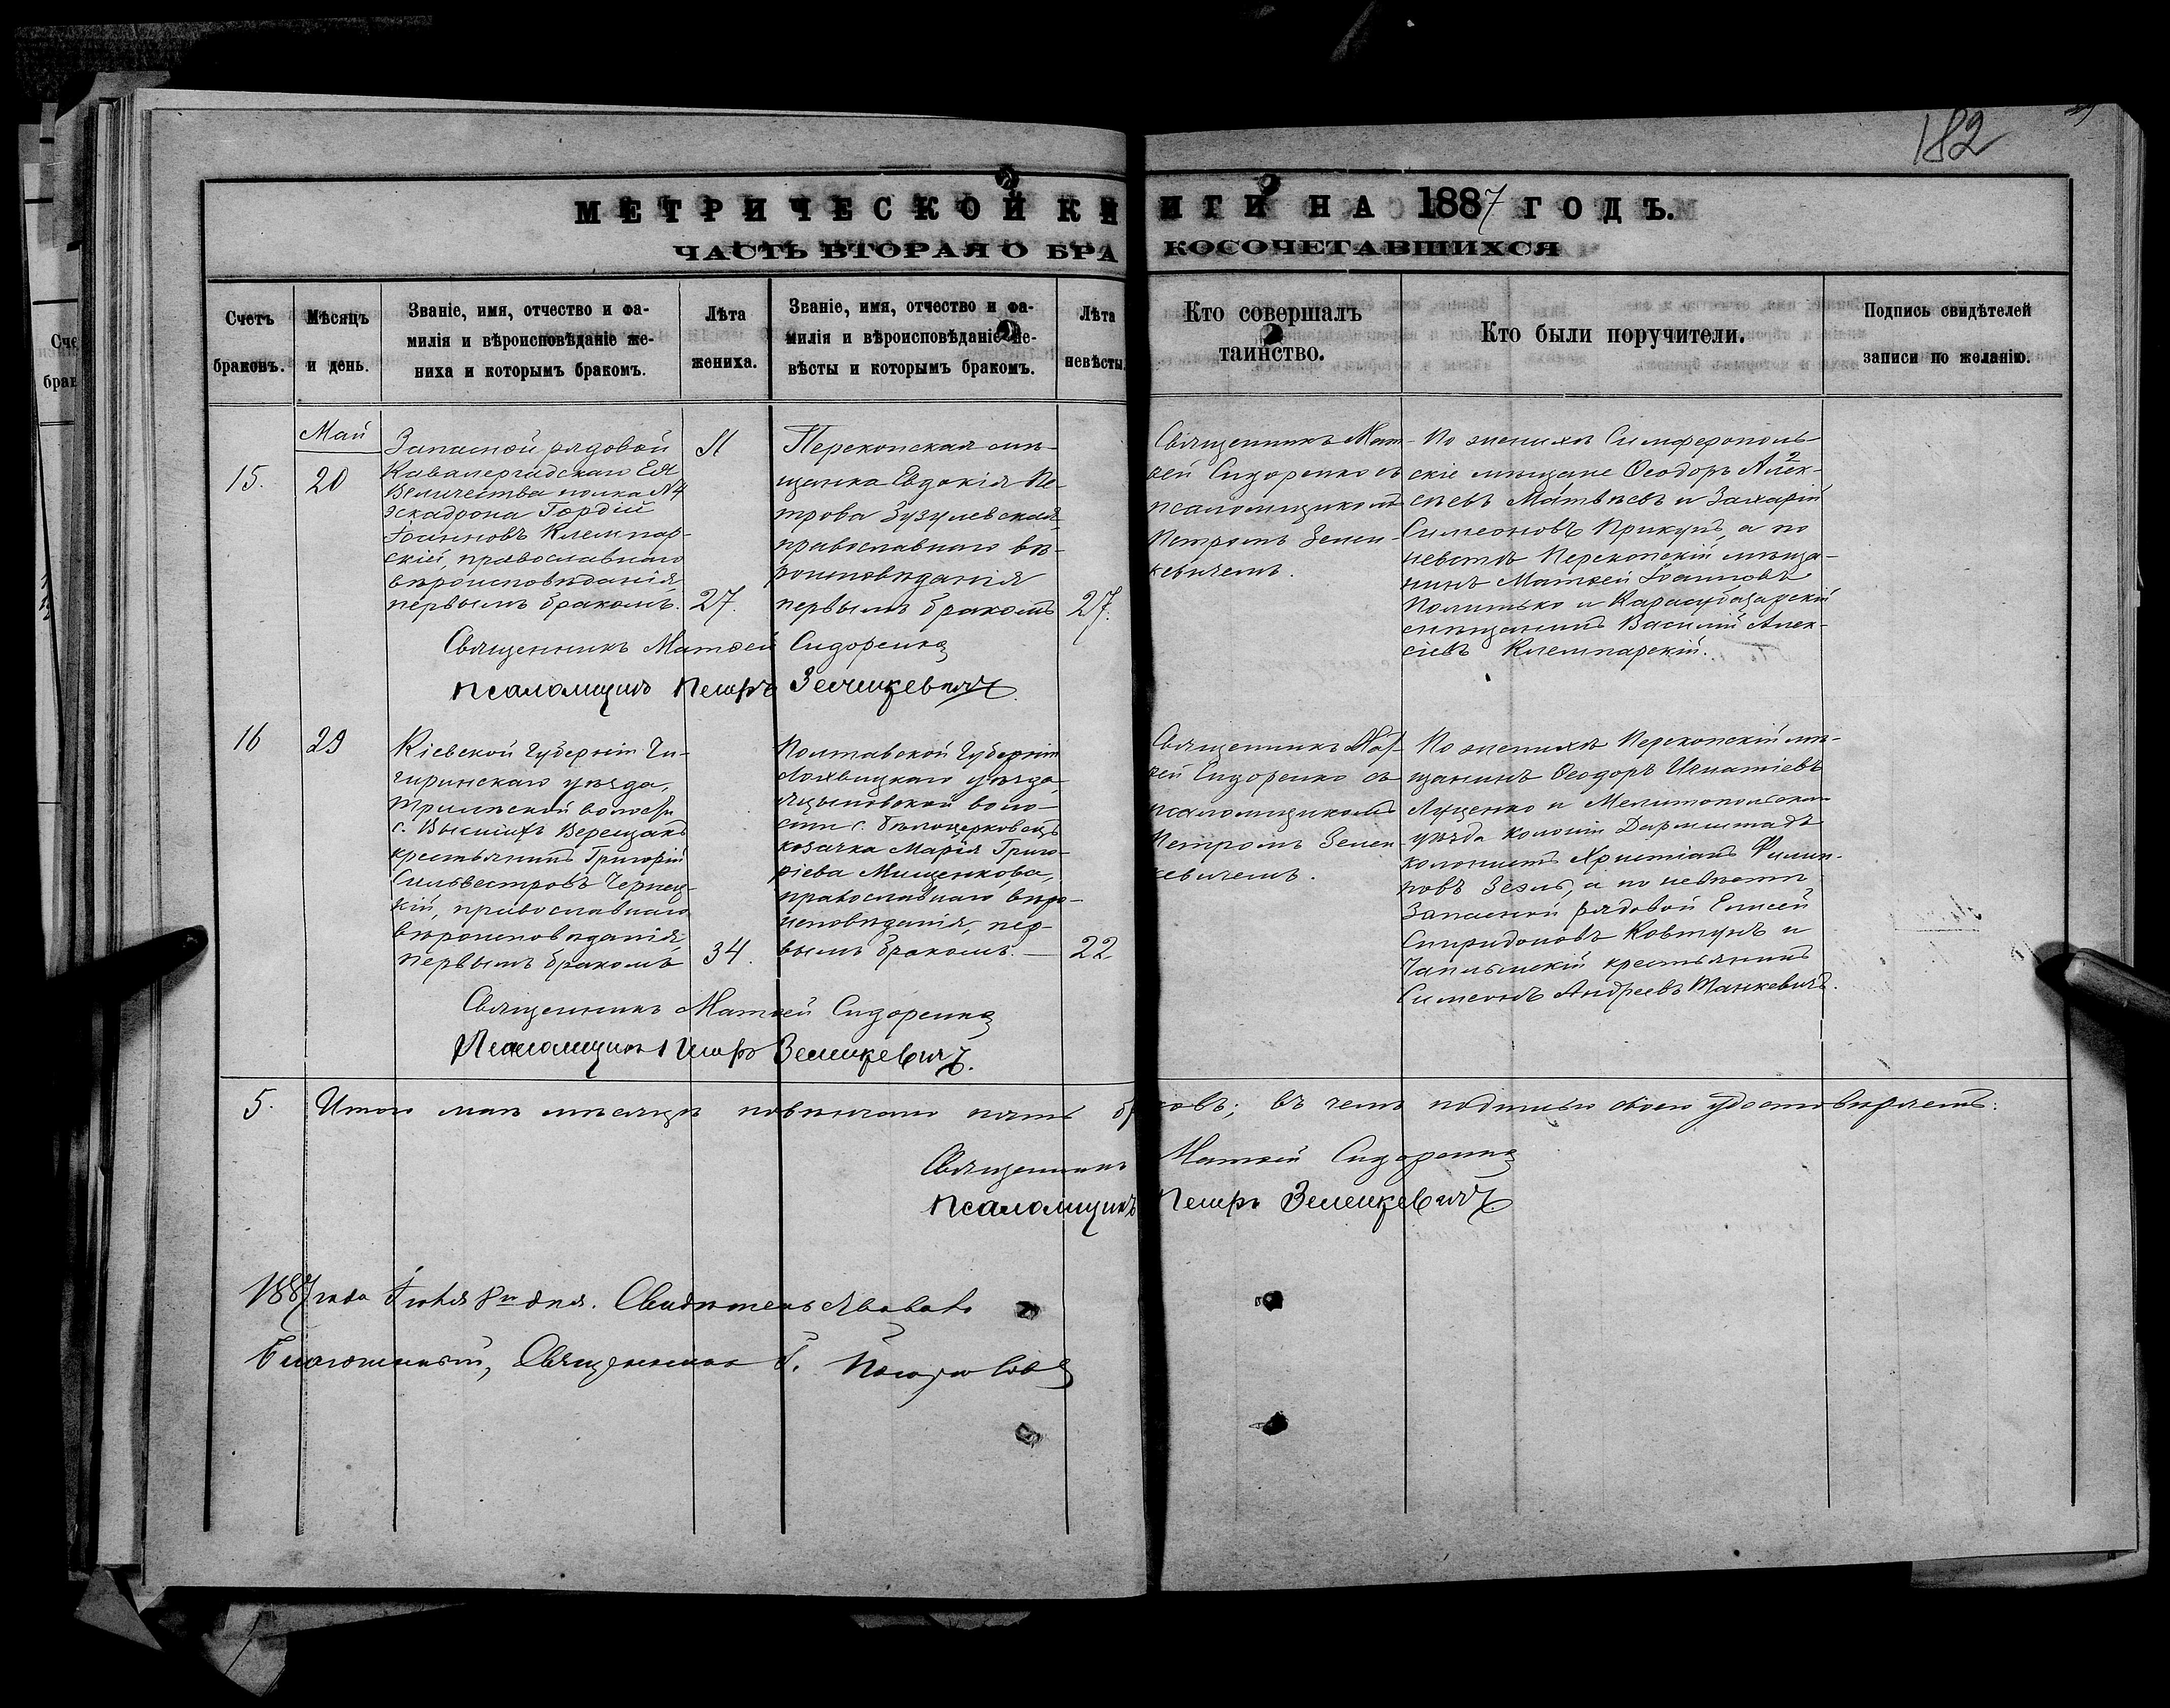 182
МЕТРИЧЕСКОЙ КНИГИ НА 1887 ГОДЪ.
ЧАСТЬ ВТОРАЯ О БРАКОСОЧЕТАВШИХСЯ
Счетъ
браковъ.
Мѣсяцъ
и день.
Званіе, имя, отчество и фа-
милія и вѣроисповѣданіе же-
ниха и которымъ бракомъ.
Лѣта
жениха.
Званіе, имя, отчество и фа-
милія и вѣроисповѣданіе не-
вѣсты и которымъ бракомъ.
Лѣта
невѣсты.
Кто совершалъ
таинство.
Кто были поручители.
Подпись свидѣтелей
записи по желанію.
15.
Май
20
Запасной рядовой
Кавалергадскаго Ея
Величества полка №4
эскадрона Гордій
Іоанновъ Клемпар-
скій, православнаго
вѣроисповѣданія,
первымъ бракомъ.
27.
Перекопская мѣ-
щанка Евдокія Пе-
трова Зузулевская,
православнаго вѣ-
роисповѣданія
первымъ бракомъ
27.
Священникъ Мат-
ѳей Сидоренко съ
псаломщикомъ
Петромъ Зелен-
кевичемъ.
По женихѣ Симферополь-
скіе мѣщане Ѳеодоръ Алек-
сѣевъ Матвѣевъ и Захарій
Симеоновъ Прикупъ, а по
невѣстѣ Перекопскій мѣща-
нинъ Матѳей Іоанновъ
и Карасубазарскій
мѣщанинъ Василій Алек-
сіевъ Клемпарскій.
Священникъ Матѳей Сидоренко
Псаломщикъ Петръ Зеленкевичъ.
16
29
Кіевской Губерніи Чи-
гиринскаго уѣзда,
волости
с. Верещакъ
крестьянинъ Григорій
Сильвестровъ Чернец-
кій, православнаго
вѣроисповѣданія,
первымъ бракомъ
34.
Полтавской Губерніи
Лохвицкаго уѣзда,
воло-
сти с. Бѣлоцерковецъ
козачка Марія Григо-
ріева Мищенкова,
православнаго вѣро-
исповѣданія, пер-
вымъ бракомъ. —
22
Священникъ Мат-
ѳей Сидоренко съ
псаломщикомъ
Петромъ Зелен-
кевичемъ.
По женихѣ Перекопскій мѣ-
щанинъ Ѳеодоръ Игнатіевъ
Луценко и Мелитопольскаго
уѣзда колоніи Дармштадъ
колонистъ Христіанъ Филип-
повъ а по невѣстѣ
Запасной рядовой Елисей
Спиридоновъ Ковтунъ и
Чаплынскій крестьянинъ
Симеонъ Андреевъ Танкевичъ.
Священникъ Матѳей Сидоренко
Псаломщикъ Петръ Зеленкевичъ.
5. Итого маѣ мѣсяцѣ повѣнчано пять браковъ; въ чемъ подписью своею удостовѣряемъ:
Священникъ Матѳей Сидоренко
Псаломщикъ Петръ Зеленкевичъ.
1887 года Іюля 8го дня. Свидѣтельствовалъ
Благочинный, Священникъ